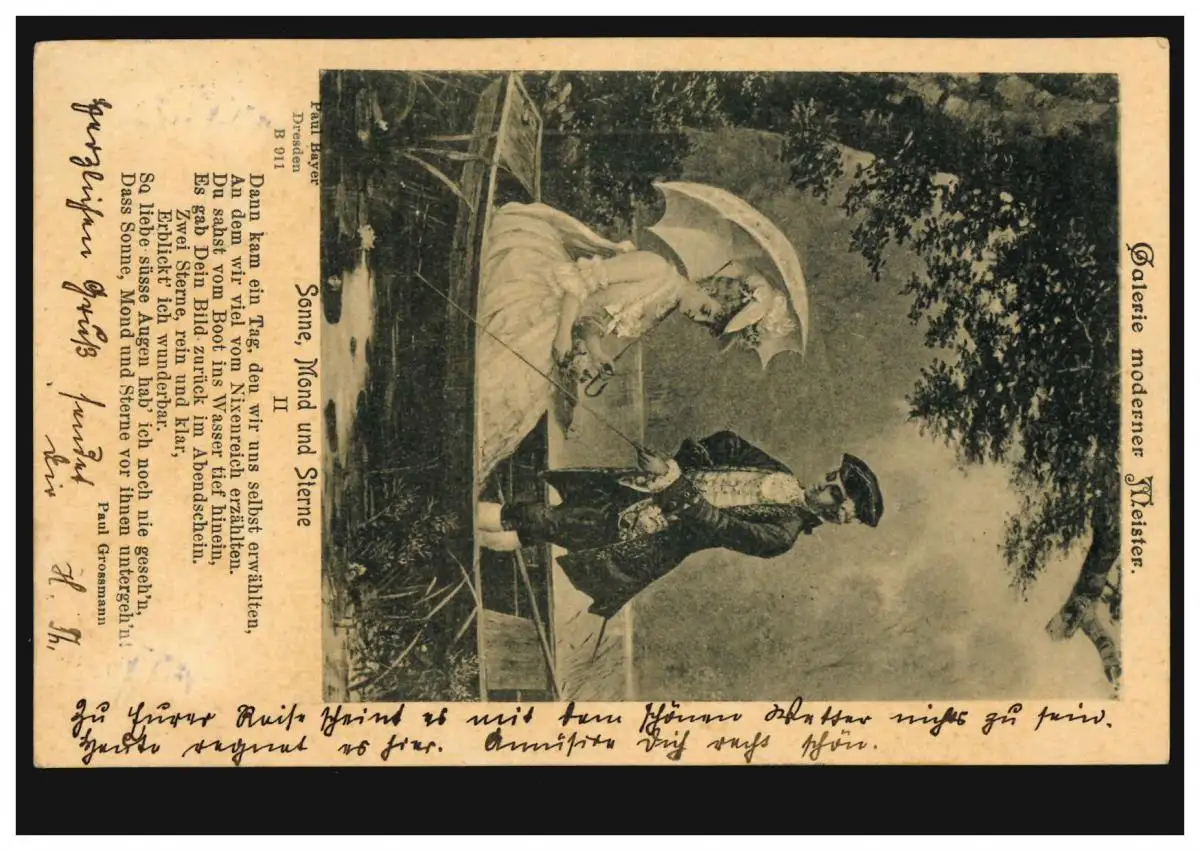 Galerie moderner Meister.
Paul Bayer
Dresden
B 911
Sonne, Mond und Sterne
II
Dann kam ein Tag, den wir uns selbst erwählten,
An dem wir viel vom Nixenreich erzählten.
Du sahst vom Boot ins Wasser tief hinein,
Es gab Dein Bild zurück im Abendschein.
Zwei Sterne, rein und klar,
Erblickt' ich wunderbar.
So liebe süsse Augen hab' ich noch nie geseh'n,
Dass Sonne, Mond und Sterne vor ihnen untergeh'n!
Paul Grossmann
Herzlichen Gruß sendet
Dir H. Th.
Zu Eurer Reise scheint es mit dem schönen Wetter nichts zu sein.
Heute regnet es hier. Amüsire Dich recht schön.